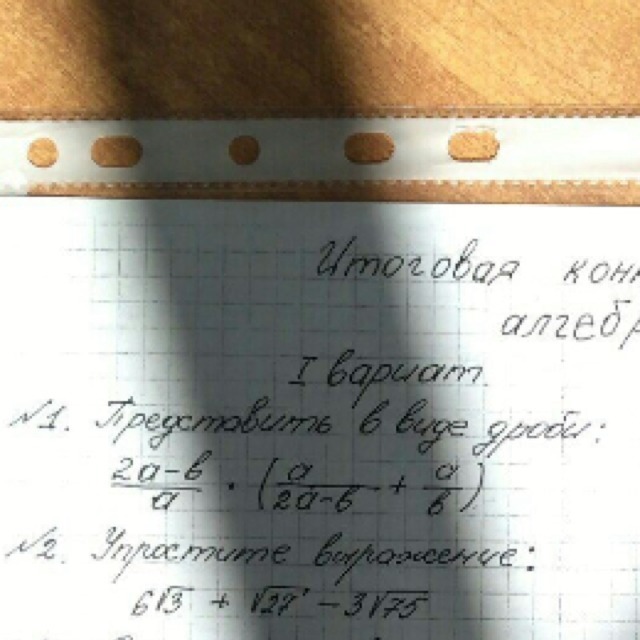 Итоговая
алгебр
I вариант.
№1. Представить в виде дроби:
2a-b/a · (a/2a-b + a/b)
№2. Упростите выражение:
6√3 + √27 - 3√75